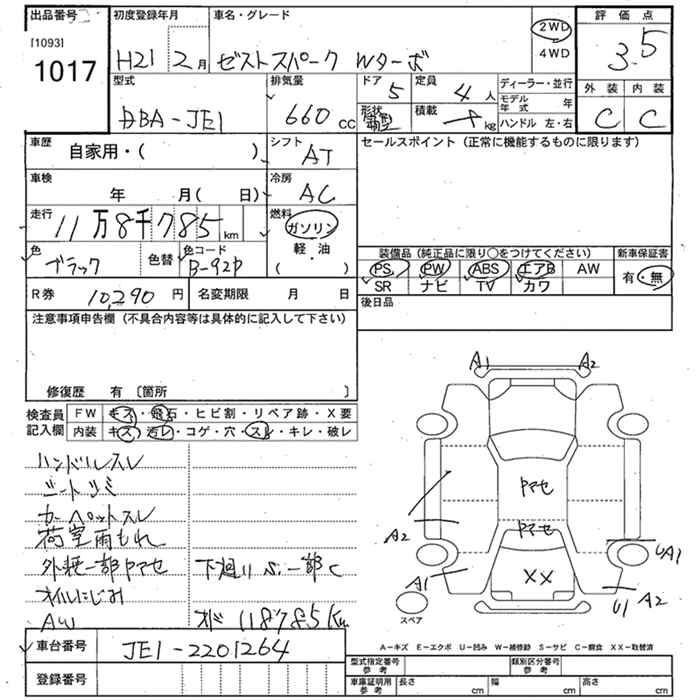 出品番号
[1093]
1017
初度登録年月
H21 2月
車名・グレード
ゼストスパーク Wターボ
2WD
4WD
評価点
3.5
外装 内装
C C
型式
DBA-JE1
排気量
660 cc
ドア
5
定員
4人
形状
箱型
積載
kg
ディーラー・並行
モデル年式 年
ハンドル 左・右
車歴
自家用・( )
シフト
AT
セールスポイント (正常に機能するものに限ります)
車検
年 月( 日)
冷房
AC
走行
11万8千785km
燃料
ガソリン
軽・油
( )
色
ブラック
色替
色コード
B-92P
装備品 (純正品に限り○をつけてください)
新車保証書
PS PW ABS エアB AW
SR ナビ TV カワ
有・無
R券 10,290円
名変期限 月 日
後日品
注意事項申告欄 (不具合内容等は具体的に記入して下さい)
修復歴 有 〔箇所 〕
検査員記入欄
FW キズ・飛石・ヒビ割・リペア跡・X要
内装 キズ・汚レ・コゲ・穴・スレ・キレ・破レ
ハンドルスレ
シートシミ
カーペットスレ
荷室雨もれ
外装一部ヤマセ 下廻りS一部C
オイルにじみ
AW
118785Km
A1 A2
ヤマセ
ヤマセ
A2
UA1
A1
XX
U1 A2
スペア
A-キズ E-エクボ U-凹み W-補修跡 S-サビ C-腐食 XX-取替済
車台番号
JE1-2201264
登録番号
型式指定番号 参考
類別区分番号 参考
車庫証明用 参考
長さ cm 幅 cm 高さ cm